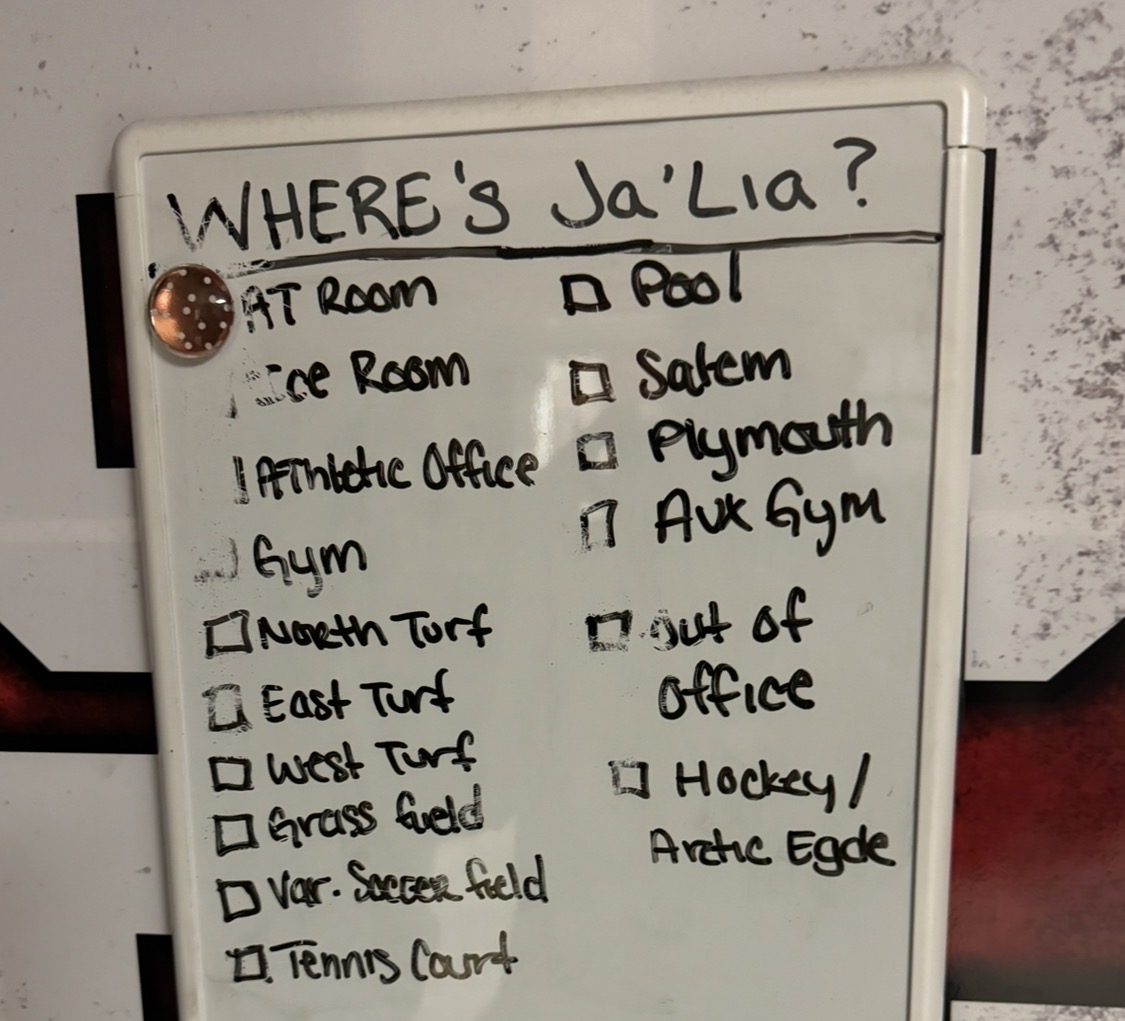 WHERE's Ja'Lia?
AT Room
Ice Room
Athletic Office
Gym
North Turf
East Turf
West Turf
Grass field
Var. Soccer field
Tennis Court
Pool
Salem
Plymouth
Aux Gym
out of
office
Hockey/
Arctic Egde